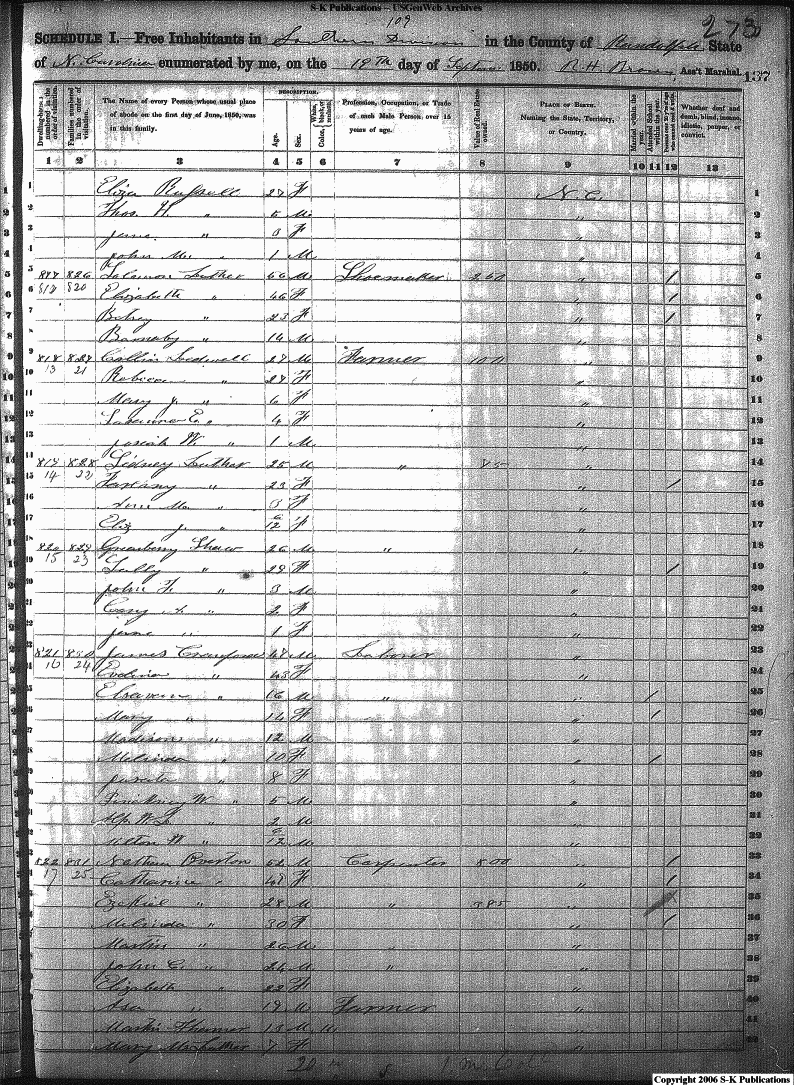 S-K Publications – USGenWeb Archives
109
273
SCHEDULE I.—Free Inhabitants in Southern Division in the County of Randolph State
of N. Carolina enumerated by me, on the 19th day of Septem 1850. R H Brown Ass't Marshal. 137
Dwelling-houses numbered in the order of visitation.
Families numbered in the order of visitation.
The Name of every Person whose usual place of abode on the first day of June, 1850, was in this family.
DESCRIPTION.
Age.
Sex.
Color, White, black, or mulatto.
Profession, Occupation, or Trade of each Male Person over 15 years of age.
Value of Real Estate owned.
PLACE OF BIRTH. Naming the State, Territory, or Country.
Married within the year.
Attended School within the year.
Whether deaf and dumb, blind, insane, idiotic, pauper, or convict.
1 2 3 4 5 6 7 8 9 10 11 12 13
1 Eliza Russell 27 F N.C. 1
2 Thos. H. " 5 M " 2
3 Jane " 3 F " 3
4 John M. " 1 M " 4
5 817 826 Solomon Luther M Shoemaker 250 " 1 5
6 Elizabeth " 46 F " 1 6
7 Betsy " 23 F " 1 7
8 Barnaby " 14 M " 8
9 818 827 Collin Ledwell 27 M Farmer 100 " 9
10 13 21 Rebecca " 27 F " 10
11 Mary J. " 6 F " 11
12 E. " 4 F " 12
13 Josiah W. " 1 M " 13
14 819 828 Sidney Luther 25 M " " 14
15 14 22 " 23 F " 1 15
16 Ann M. " 3 F " 16
17 Eliz J. " 6/12 F " 17
18 820 829 Greenberry Shaw 26 M " " 18
19 15 23 Sally " 28 F " 1 19
20 John F. " 3 M " 20
21 " 2 F " 21
22 Jane " 1 F " 22
23 821 830 James Crawford M Laborer " 23
24 16 24 Evelina " 43 F " 24
25 " 16 M " " 1 25
26 Mary " 14 F " 1 26
27 Madison " 12 M " 27
28 Melinda " 10 F " 1 28
29 " 8 F " 29
30 Pinckney W " 5 M " 30
31 " 2 M " 31
32 Milton W " 6/12 M " 32
33 822 831 Nathan Overton 52 M Carpenter 800 " 1 33
34 17 25 Catharine " F " 1 34
35 Ezekiel " 28 M " 385 " 35
36 Melinda " 30 F " 1 36
37 Martin " 26 M " " 37
38 John C. " 24 M " " 38
39 Elizabeth " 22 F " 39
40 Asa " 19 M Farmer " 40
41 Martin 13 M M " 41
42 Mary 7 F " 42
20 m
Copyright 2006 S-K Publications